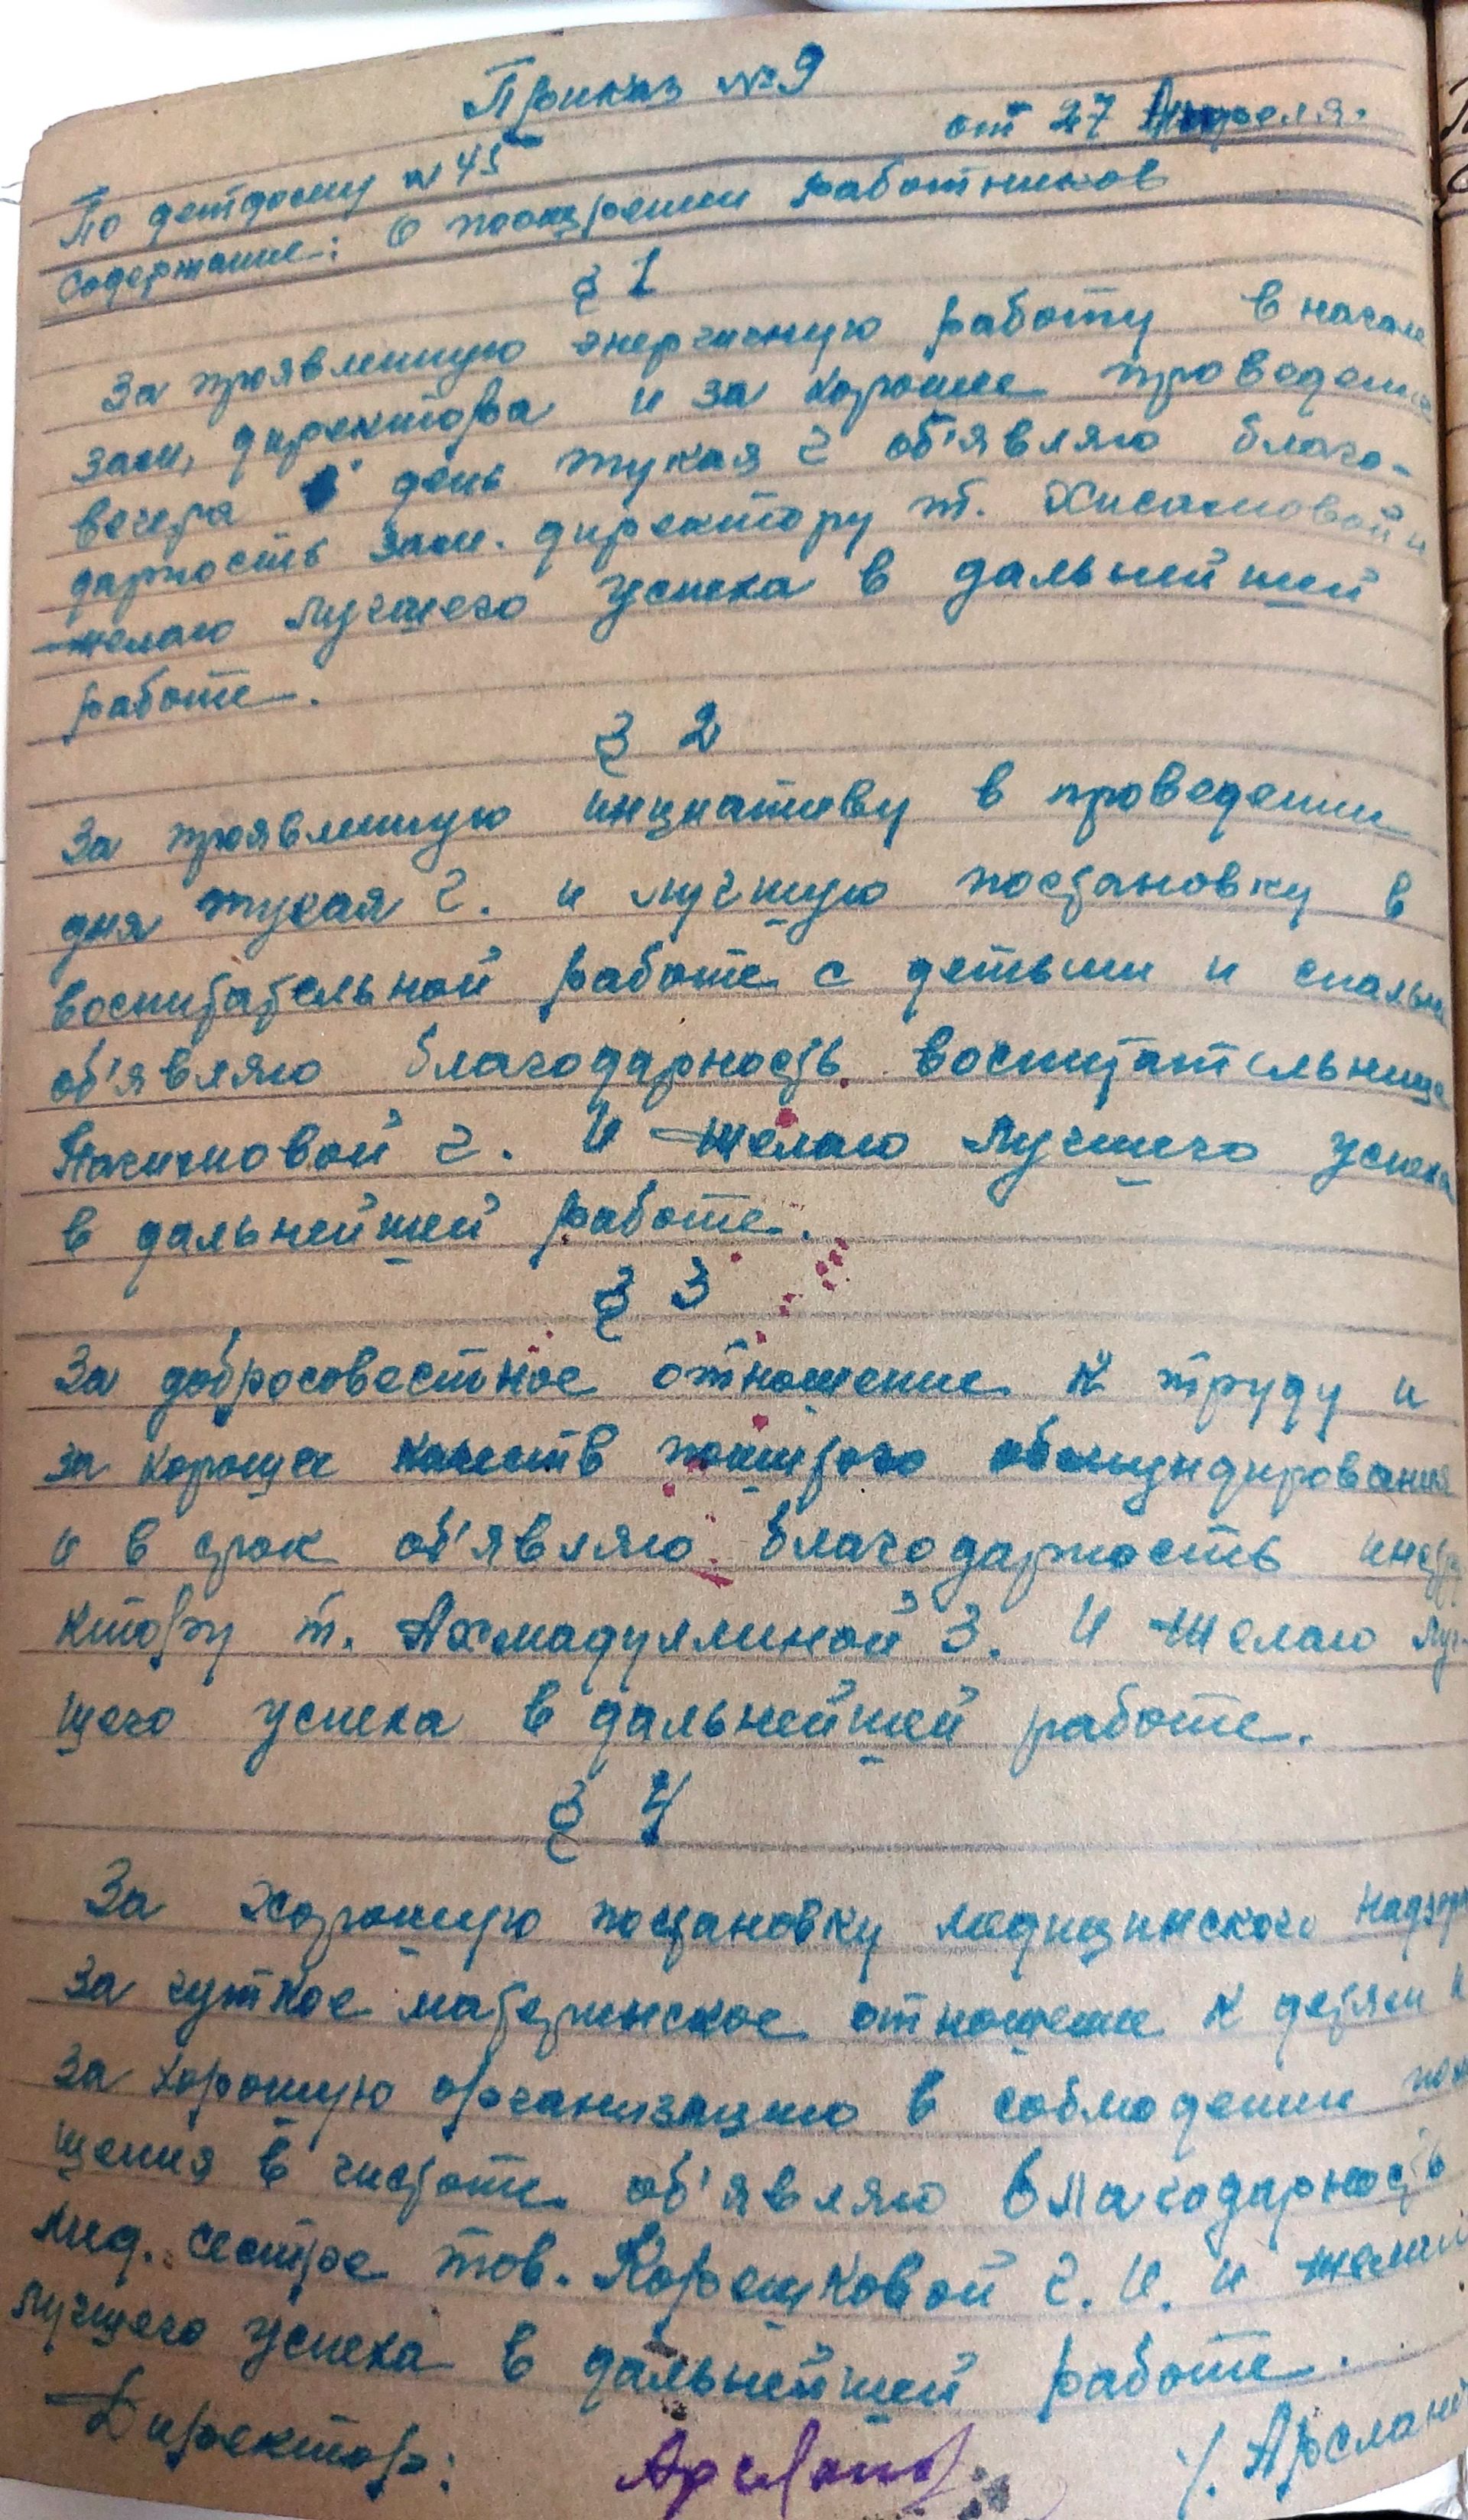 Приказ №9
от 27 Апреля.
По детдому №45
Содержание: О поощрении работников
§ 1
За проявленную энергичную работу в начале
зам, директора и за хорошее проведение
вечера день тукая г об'являю благо-
дарность зам. директору т. Хисамовой и
желаю лучшего успеха в дальнейшей
работе.
§ 2
За проявленную инциативу в проведении
дня тукая г. и лучшую постановку в
воспитательной работе с детьми и спальни
об'являю благодарность воспитательнице
г. И желаю лучшего успеха
в дальнейшей работе.
§ 3
За добросовестное отношение к труду и
за хороше качеств обмундирования
и в срок об'являю благодарность инстру
ктору т. Ахмадуллиной З. И желаю луч-
шего успеха в дальнейшей работе.
§ 4
За хорошую постановку медицинского надзора
за чуткое материнское отношение к детям и
за хорошую организацию в соблюдении поме
щения в чистоте об'являю благодарность
мед. сестре тов. Корешковой г. И. и желаю
лучшего успеха в дальнейшей работе.
Директор: Арсланов /. Арсланов